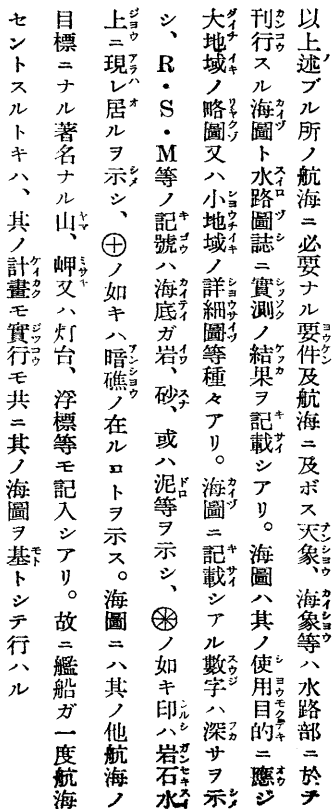 以上述ブル所ノ航海ニ必要ナル要件及航海ニ及ボス天象、海象等ハ水路部ニ於テ
刊行スル海圖ト水路圖誌ニ實測ノ結果ヲ記載シアリ。海圖ハ其ノ使用目的ニ應ジ
大地域ノ略圖又ハ小地域ノ詳細圖等種々アリ。海圖ニ記載シアル數字ハ深サヲ示
シ、R・S・M等ノ記號ハ海底ガ岩、砂、或ハ泥等ヲ示シ、⊛ノ如キ印ハ岩石水
上ニ現レ居ルヲ示シ、⊕ノ如キハ暗礁ノ在ルコトヲ示ス。海圖ニハ其ノ他航海ノ
目標ニナル著名ナル山、岬又ハ灯台、浮標等モ記入シアリ。故ニ艦船ガ一度航海
セントスルトキハ、其ノ計畫モ實行モ共ニ其ノ海圖ヲ基トシテ行ハル